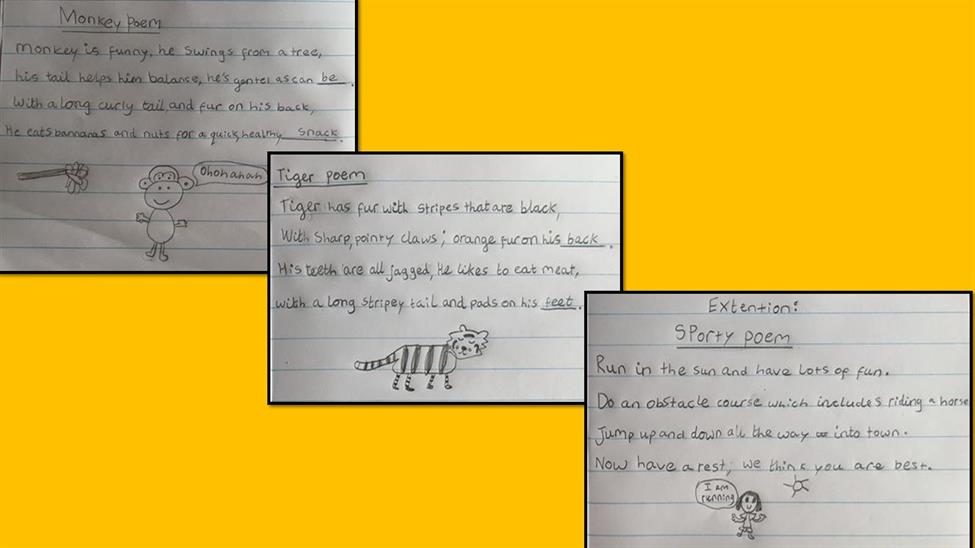 Monkey poem
Monkey is funny, he swings from a tree,
his tail helps him balanse, he's gentel as can be.
With a long curly tail, and fur on his back,
He eats bannanas and nuts for a quick, healthy snack.
Ohohahah
Tiger poem
Tiger has fur with stripes that are black,
With sharp, pointy claws; orange fur on his back.
His teeth are all jagged, He likes to eat meat,
with a long stripey tail and pads on his feet.
Extention:
Sporty poem
Run in the sun and have lots of fun.
Do an obstacle course which includes riding a horse
Jump up and down all the way into town.
Now have a rest; we think you are best.
I am
running